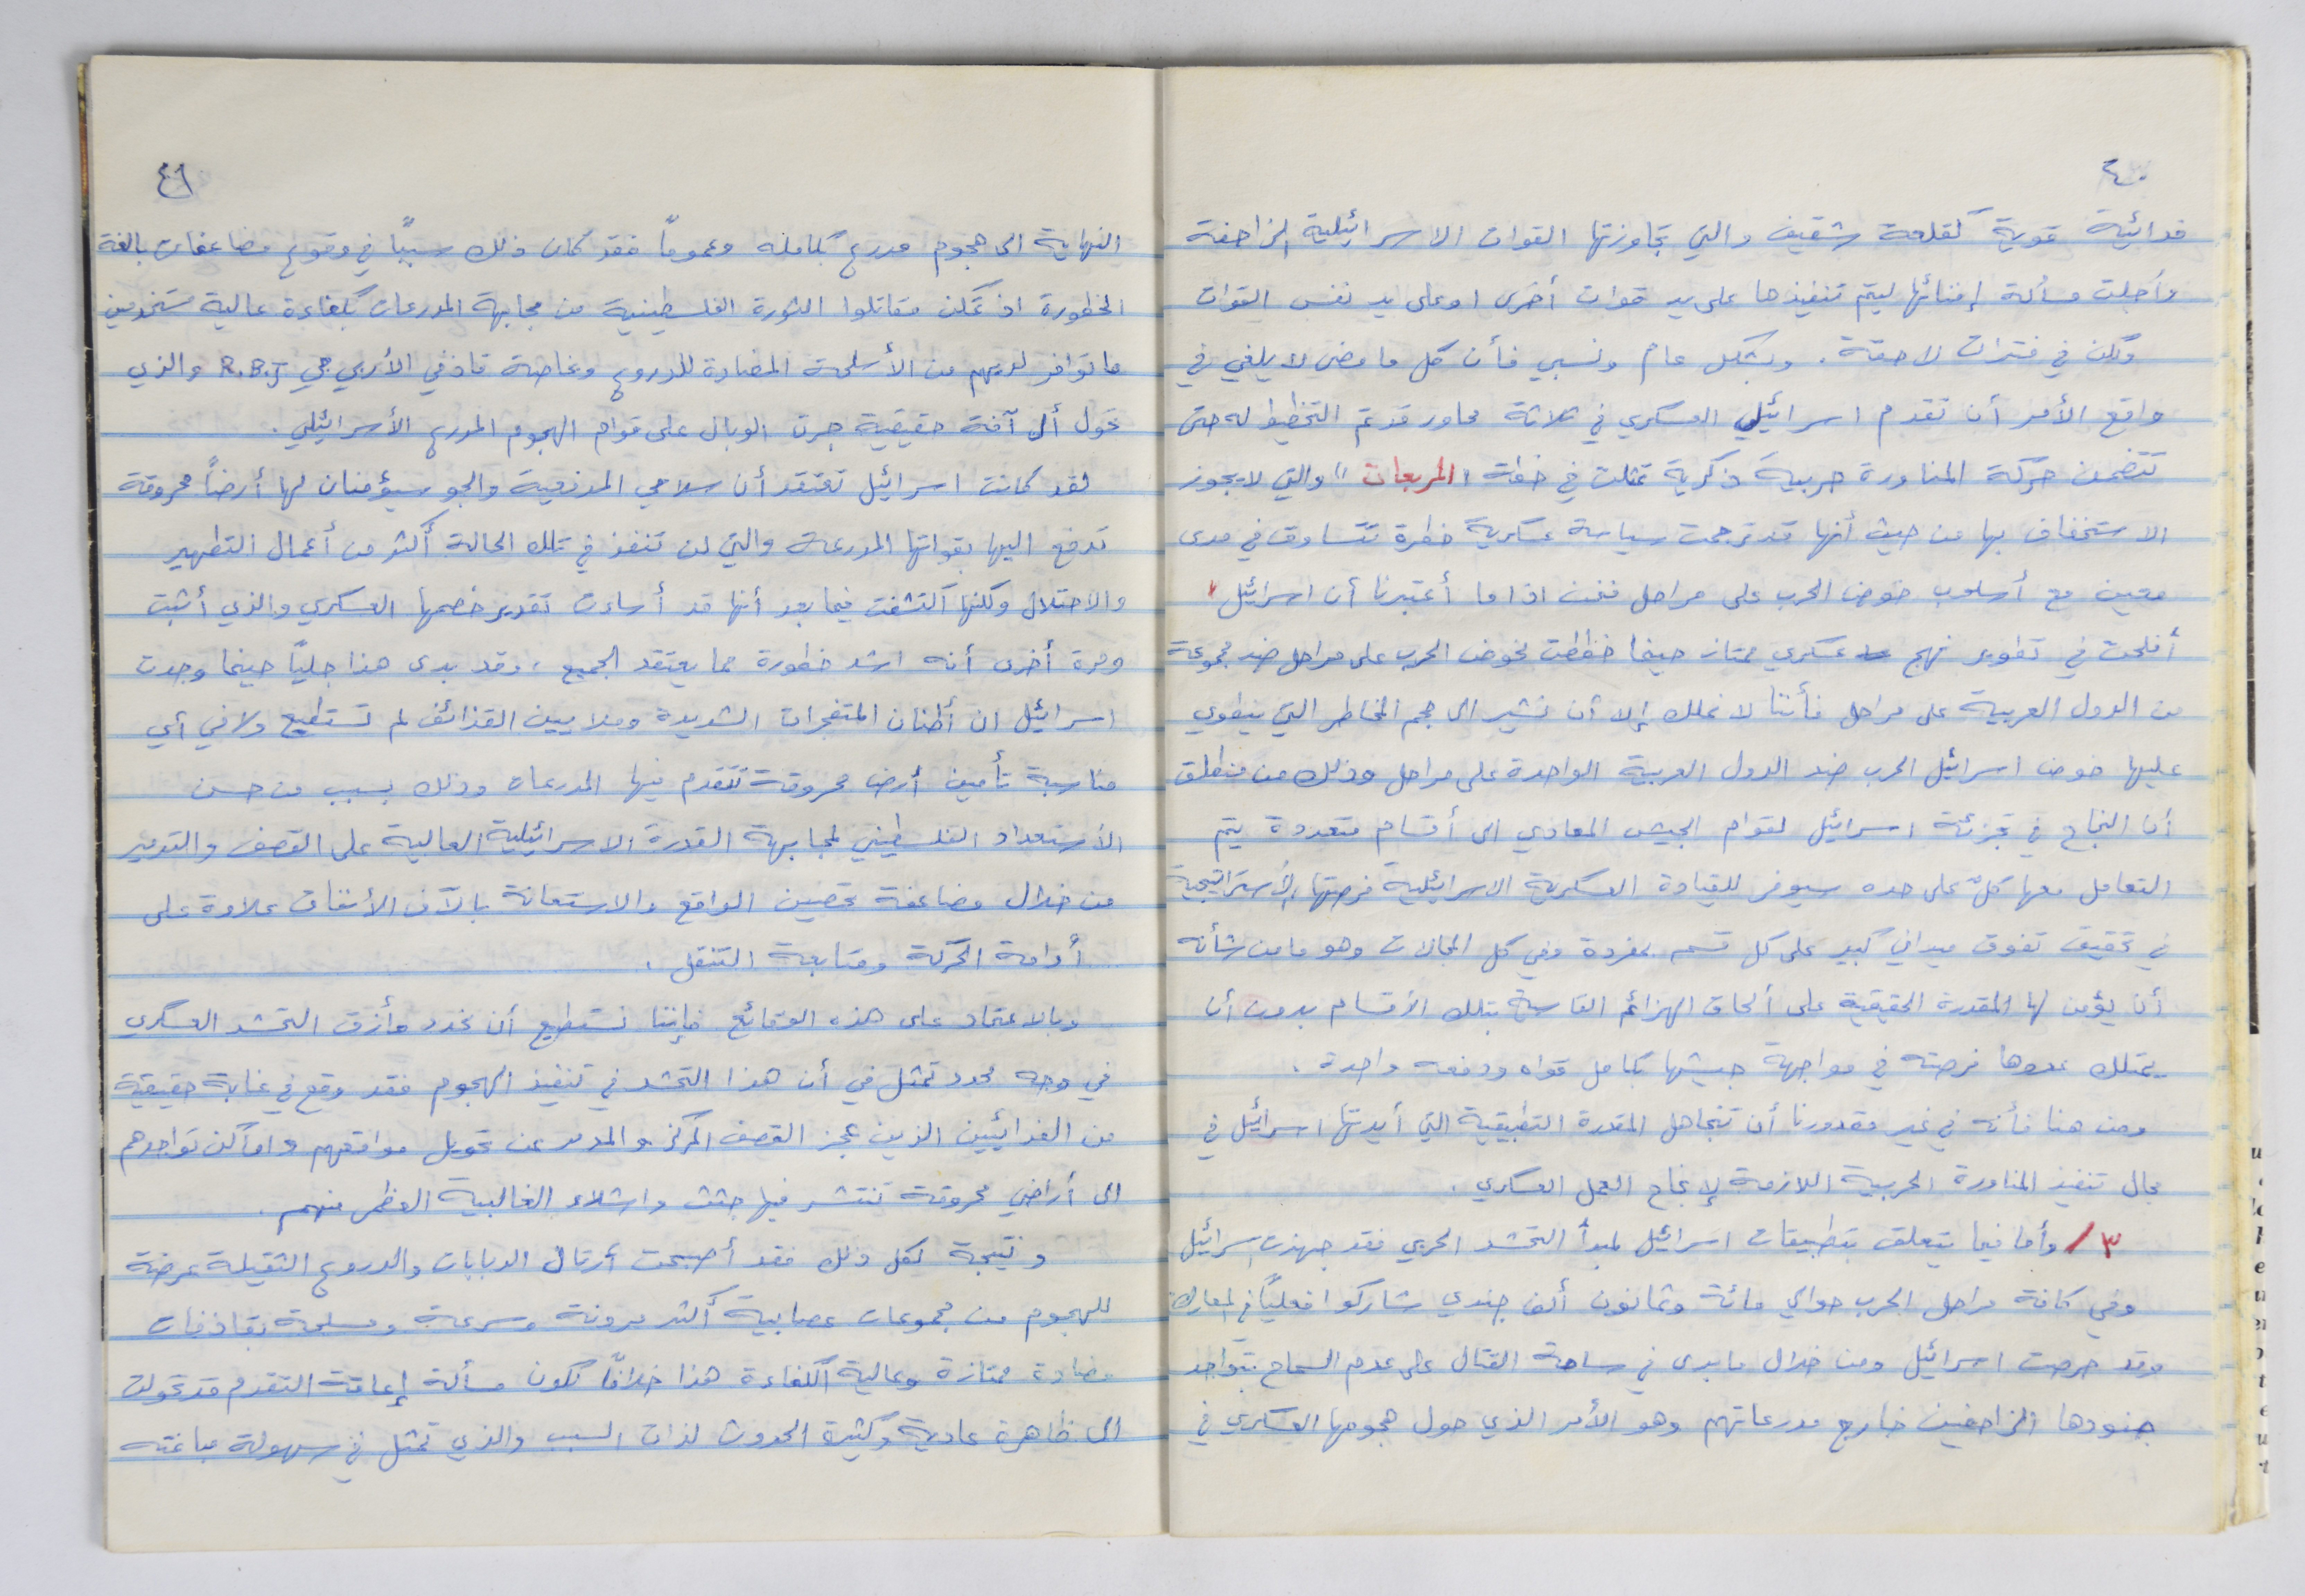 ٤٠
فدائية قوية كقلعة شقيف والتي تجاوزتها القوات الاسرائيلية الزاحفة
وأجلت مسألة إفنائها ليتم تنفيذها على يد قوات أخرى او على يد نفس القوات
ولكن في فترات لاحقة. وبشكل عام ونسبي فأن كل ما مضى لا يلغي في
واقع الأمر أن تقدم اسرائيلي العسكري في ثلاثة محاور قد تم التخطيط له حتى
تتضمن حركة المناورة حربية ذكرية تمثلت في خطة "المربعات" والتي لا يجوز
الاستخفاف بها من حيث أنها قد ترجمت سياسة عسكرية خطرة تتساوق في مدى
معين مع أسلوب خوض الحرب على مراحل فنحن اذا ما أعتبرنا أن اسرائيل
أفلحت في تطوير نهج عسكري ممتاز حينما خططت لخوض الحرب على مراحل ضد مجموعة
من الدول العربية على مراحل فأننا لا نملك إلا أن نشير الى حجم المخاطر التي ينطوي
عليها خوض اسرائيل الحرب ضد الدول العربية الواحدة على مراحل وذلك من منطلق
أن النجاح في تجزئة اسرائيل لقوام الجيش المعادي الى أقسام متعددة يتم
التعامل معها كلٌ على حده سيوفر للقيادة العسكرية الاسرائيلية فرصتها الأستراتيجية
في تحقيق تفوق ميداني كبير على كل قسم بمفردة وفي كل المجالات وهو ما من شأنه
أن يؤمن لها المقدرة الحقيقية على ألحاق الهزائم القاسية بتلك الأقسام بدون أن
يمتلك عدوها فرصته في مواجهة جيشها بكامل قواه ودفعه واحدة.
ومن هنا فأنه في غير مقدورنا أن نتجاهل المقدرة التطبيقية التي أبدتها اسرائيل في
مجال تنفيذ المناورة الحربية اللازمة لإنجاح العمل العسكري.
٣/ وأما فيما يتعلق بتطبيقات اسرائيل لمبدأ التحشد الحربي فقد جهزت اسرائيل
وفي كافة مراحل الحرب حوالي مائة وثمانون ألف جندي شاركوا فعلياً في المعارك
وقد حرصت اسرائيل ومن خلال ما بدى في ساحة القتال على عدم السماح بتواجد
جنودها الزاحفين خارج مدرعاتهم وهو الأمر الذي حول هجومها العسكري في
٤١
النهاية الى هجوم مدرع بكامله وعموماً فقد كان ذلك سبباً في وقوع مضاعفات بالغة
الخطورة اذ تمكن مقاتلوا الثورة الفلسطينية من مجابهة المدرعات بكفاءة عالية مستخدمين
ما توافر لديهم من الأسلحة المضادة للدروع وخاصة قاذفي الأربي جي R.B.J والذي
تحول أل آفة حقيقية جرت الوبال على قوام الهجوم المدرع الأسرائيلي.
لقد كانت اسرائيل تعتقد أن سلاحي المدفعية والجو سيؤمنان لها أرضاً محروقة
تدفع اليها بقواتها المدرعة والتي لن تنفذ في تلك الحالة أكثر من أعمال التطهير
والاحتلال ولكنها اكتشفت فيما بعد أنها قد أساءت تقدير خصمها العسكري والذي أثبت
ومرة أخرى أنه اشد خطورة مما يعتقد الجميع، وقد بدى هذا جلياً حينما وجدت
اسرائيل ان أطنان المتفجرات الشديدة وملايين القذائف لم تستطيع ولا في أي
مناسبة تأمين أرض محروقة تتقدم فيها المدرعات وذلك بسبب من حسن
الأستعداد الفلسطيني لمجابهة القدرة الاسرائيلية العالية على القصف والتدمير
من خلال مضاعفة تحصين المواقع والاستعانة بالآف الأنفاق علاوة على
أدامة الحركة ومتابعة التنقل.
وبالاعتماد على هذه الوقائع فإننا نستطيع أن نحدد مأزق التحشد العسكري
في وجه محدد تمثل في أن هذا التحشد في تنفيذ الهجوم فقد وقع في غابة حقيقية
من الفدائيين الذين عجز القصف المركز والمدمر عن تحويل مواقعهم واماكن تواجدهم
الى أراضي محروقة تنتشر فيها جثث واشلاء الغالبية العظمى منهم.
ونتيجة لكل ذلك فقد أصبحت أرتال الدبابات والدروع الثقيلة عرضة
للهجوم من مجموعات عصابية أكثر مرونة وسرعة ومسلحة بقاذفات
مضادة ممتازة وعالية الكفاءة هذا خلافاً لكون مسألة إعاقة التقدم قد تحولت
الى ظاهرة عادية وكثيرة الحدوث لذات السبب والذي تمثل في سهولة مباغته